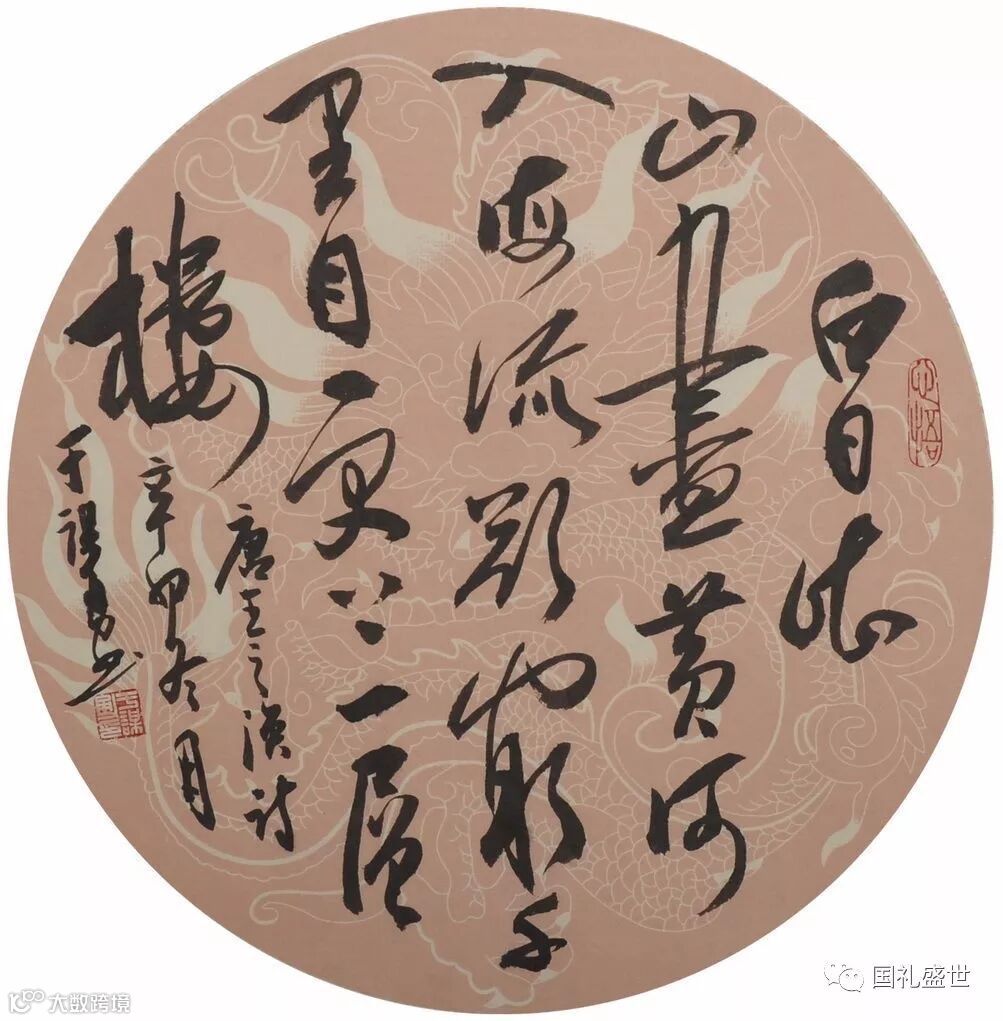 白日依
山盡黄河
入海流欲窮千
里目更上一層
樓
唐王之渙诗
辛卯冬月
于书
心悟
国礼盛世
大数跨境